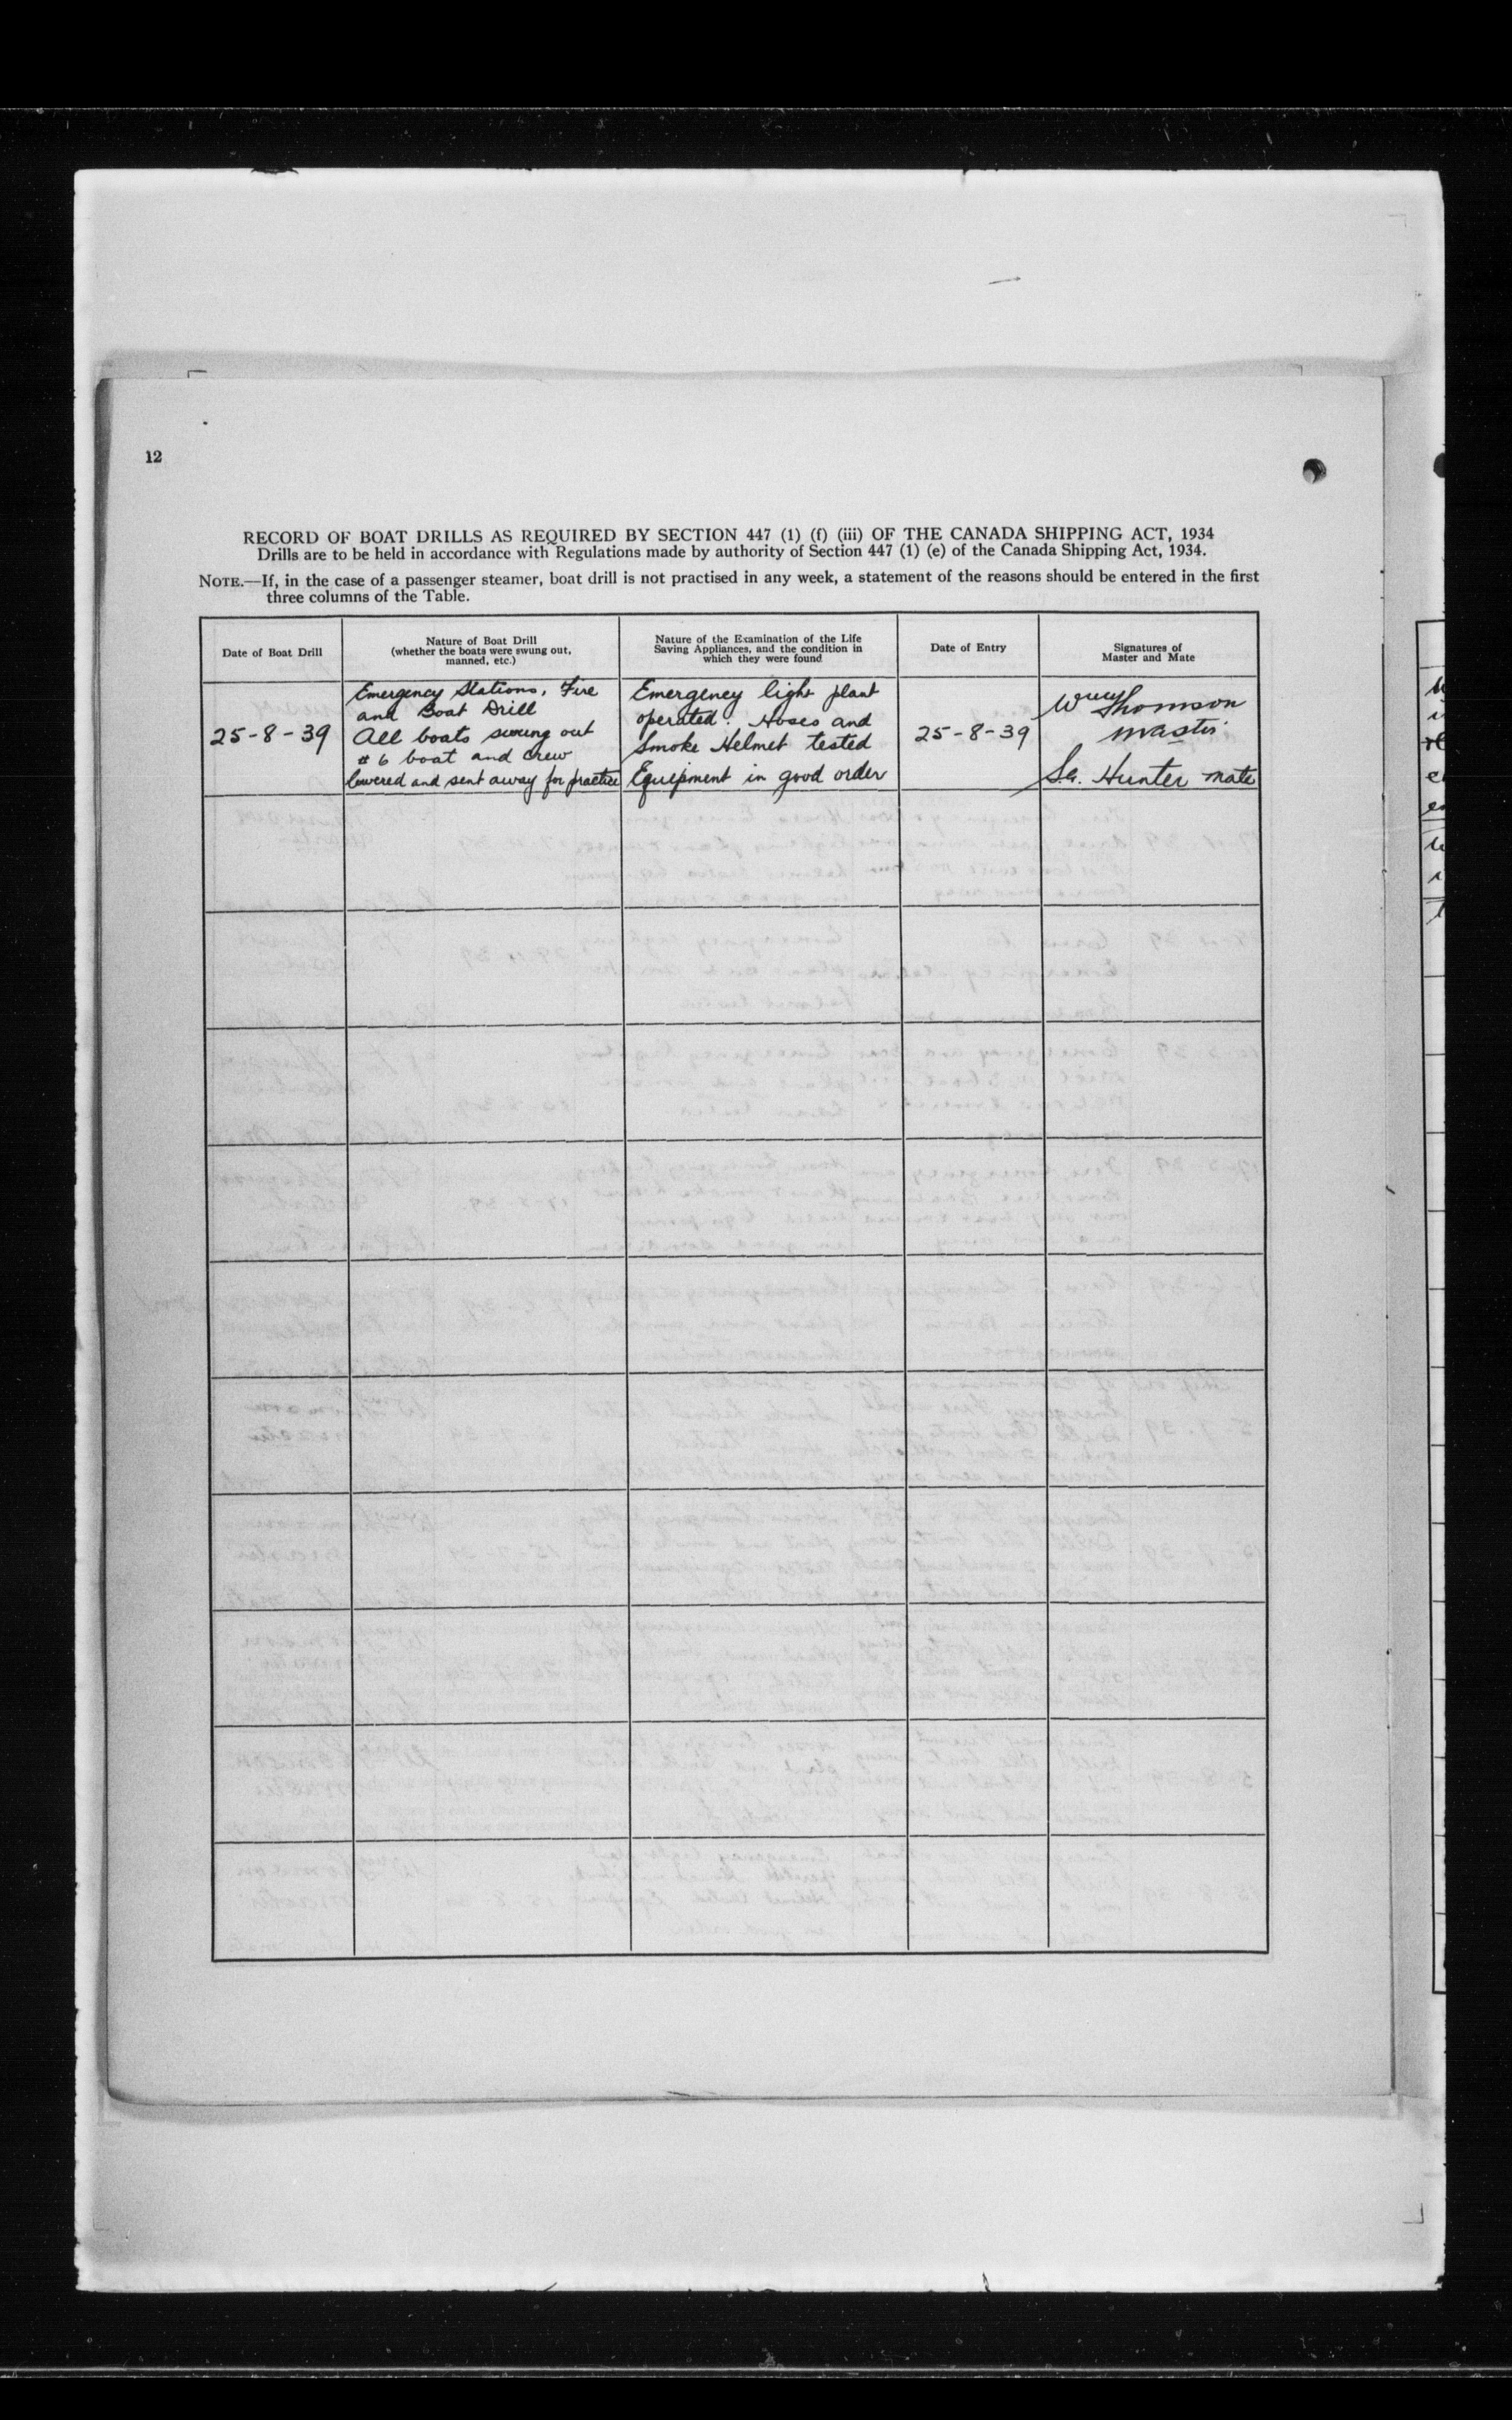 12
RECORD OF BOAT DRILLS AS REQUIRED BY SECTION 447 (1) (f) (iii) OF THE CANADA SHIPPING ACT, 1934
Drills are to be held in accordance with Regulations made by authority of Section 447 (1) (e) of the Canada Shipping Act, 1934.
NOTE.—If, in the case of a passenger steamer, boat drill is not practised in any week, a statement of the reasons should be entered in the first
three columns of the Table.
Date of Boat Drill
Nature of Boat Drill
(whether the boats were swung out,
manned, etc.)
Nature of the Examination of the Life
Saving Appliances, and the condition in
which they were found
Date of Entry
Signatures of
Master and Mate
25-8-39
Emergency Stations, Fire
and Boat Drill
All boats swung out
# 6 boat and crew
lowered and sent away for practice
Emergency light plant
operated. Hoses and
Smoke Helmet tested
Equipment in good order
25-8-39
Thomson
Master
Hunter Mate